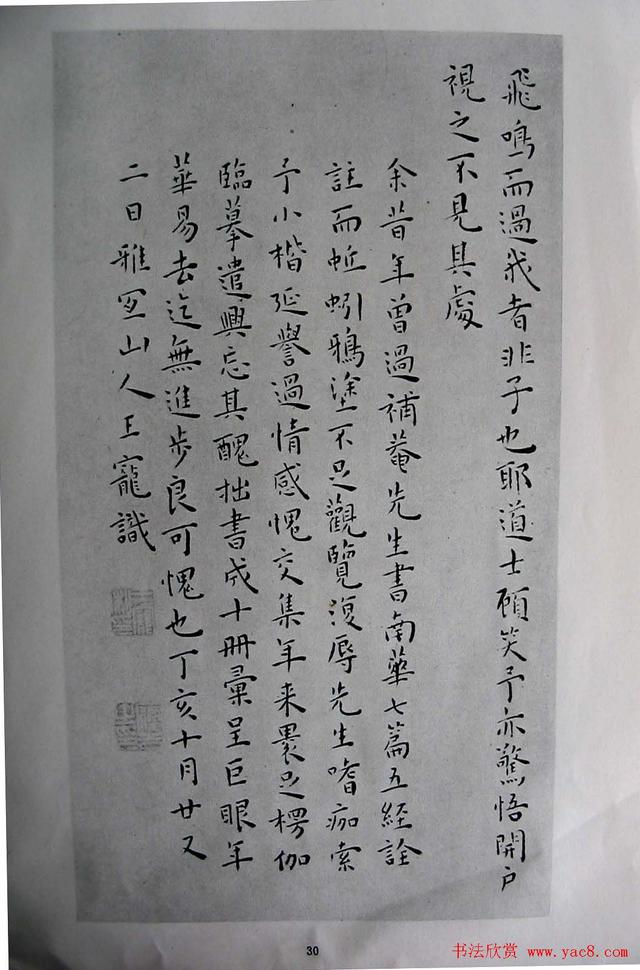 飛鳴而過我者非子也耶道士顧笑予亦驚悟開户
視之不見其處
余昔年曾過補菴先生書南華七篇五經詮
註而蚯蚓鴉塗不足觀覽復辱先生嗜痂索
予小楷延譽過情感愧交集年来裹足楞伽
臨摹遣興忘其醜拙書成十冊彙呈巨眼年
華易去迄無進步良可愧也丁亥十月廿又
二日雅宜山人王寵識
30
书法欣赏 www.yac8.com